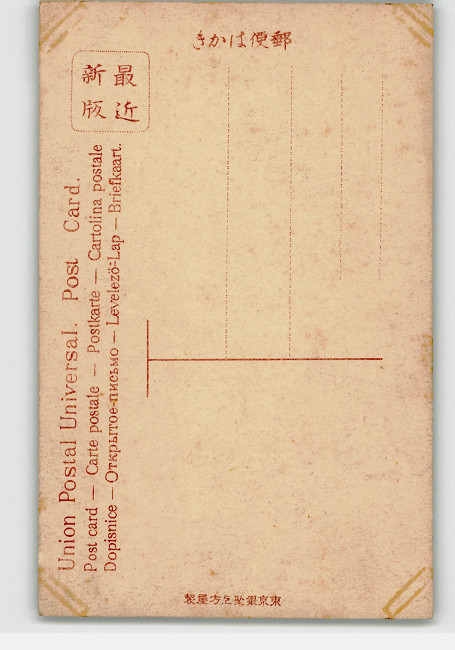 郵便はかき
最近
新版
Union Postal Universal. Post Card.
Post card — Carte postale — Postkarte — Cartolina postale
Dopisnice — Открытое-письмо — Levelezö-Lap — Briefkaart.
東京銀坐上方屋製